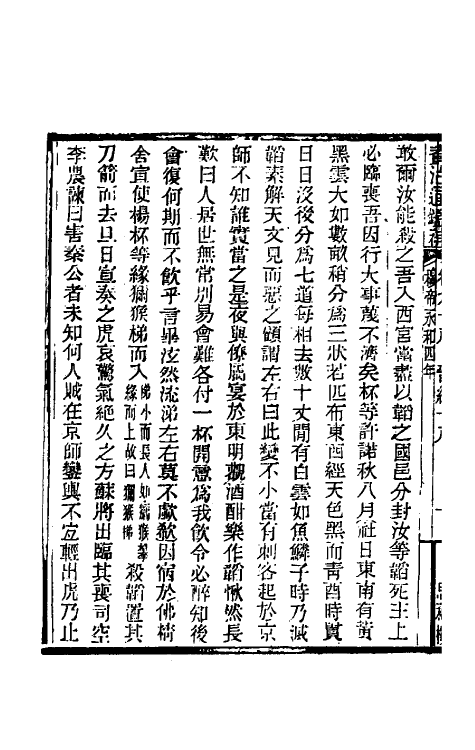 敢爾汝能殺之吾入西宮當盡以韜之國邑分封汝等韜死主上
必臨喪吾因行大事蔑不濟矣杯等許諾秋八月社日東南有黃
黑雲大如數畝稍分爲三狀若匹布東西經天色黑而青酉時貫
日日沒後分爲七道每相去數十丈閒有白雲如魚鱗子時乃滅
韜素解天文見而惡之顧謂左右曰此變不小當有刺客起於京
師不知誰實當之是夜與僚屬宴於東明觀酒酣樂作韜愀然長
歎曰人居世無常別易會難各付一杯開意爲我飲令必醉知後
會復何期而不飲乎言畢泫然流涕左右莫不歔欷因宿於佛精
舍宣使楊杯等緣獼猴梯而入梯小而長人如獼猴攀
緣而上故曰獼猴梯殺韜置其
刀箭而去旦日宣奏之虎哀驚氣絕久之方蘇將出臨其喪司空
李農諫曰害秦公者未知何人賊在京師鑾輿不宜輕出虎乃止
帝永和四年